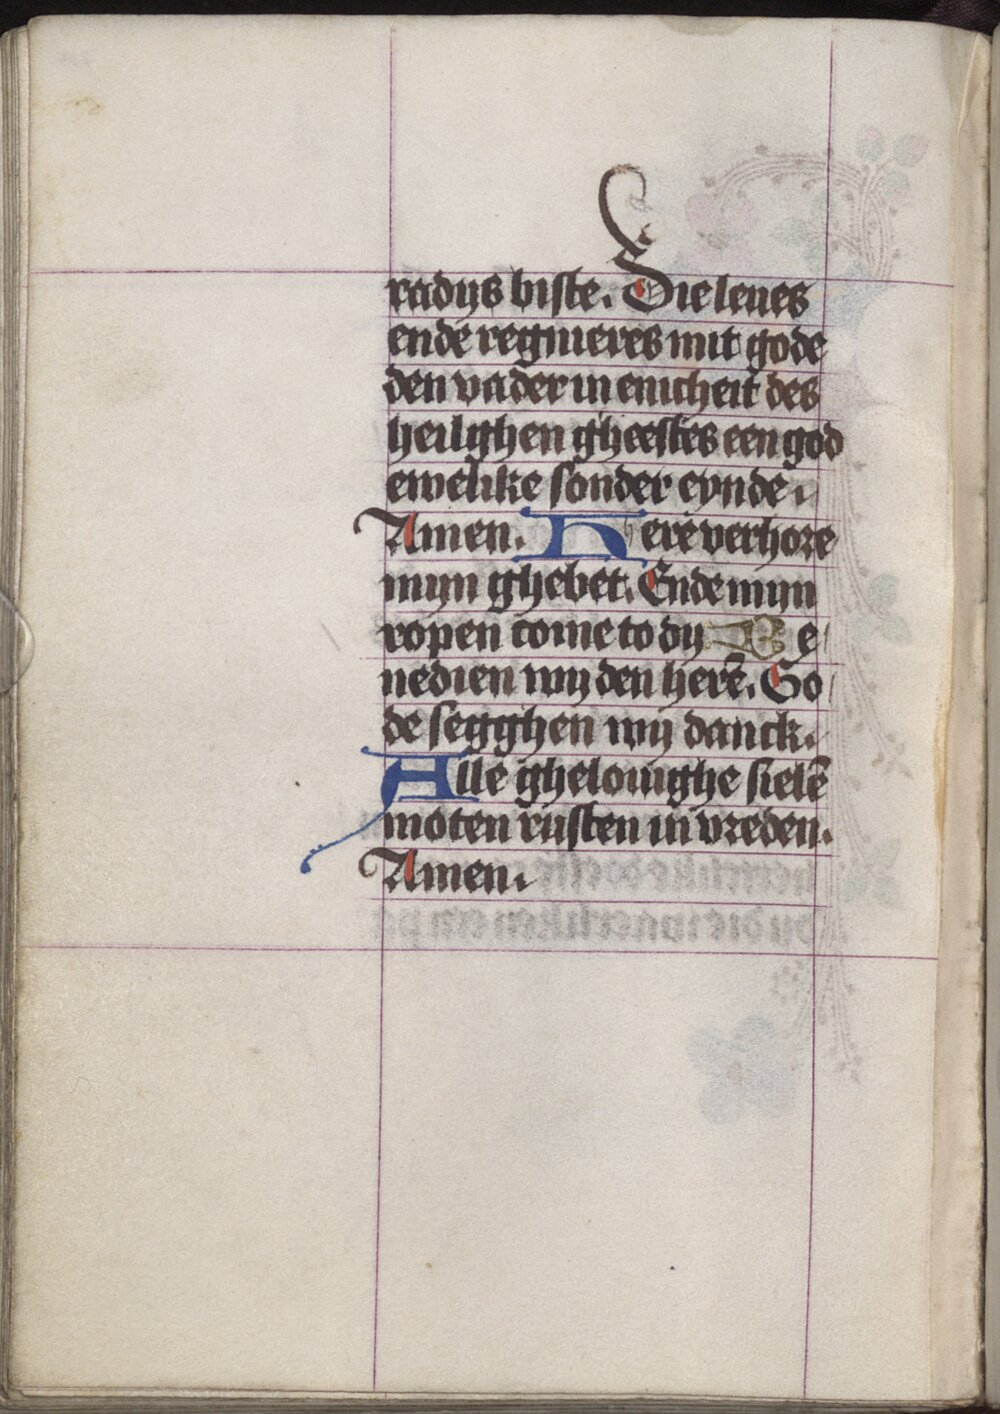 radijs biste. Die leues
ende regnieres mit gode
den vader in enicheit des
heilighen gheestes een god
ewelike sonder eynde.
Amen. Here verhore
mijn ghebet. Ende mijn
ropen come to dij Be
nedien wij den herē. Go
de segghen wij danck.
Alle ghelouighe sielē
moten rusten in vreden.
Amen.